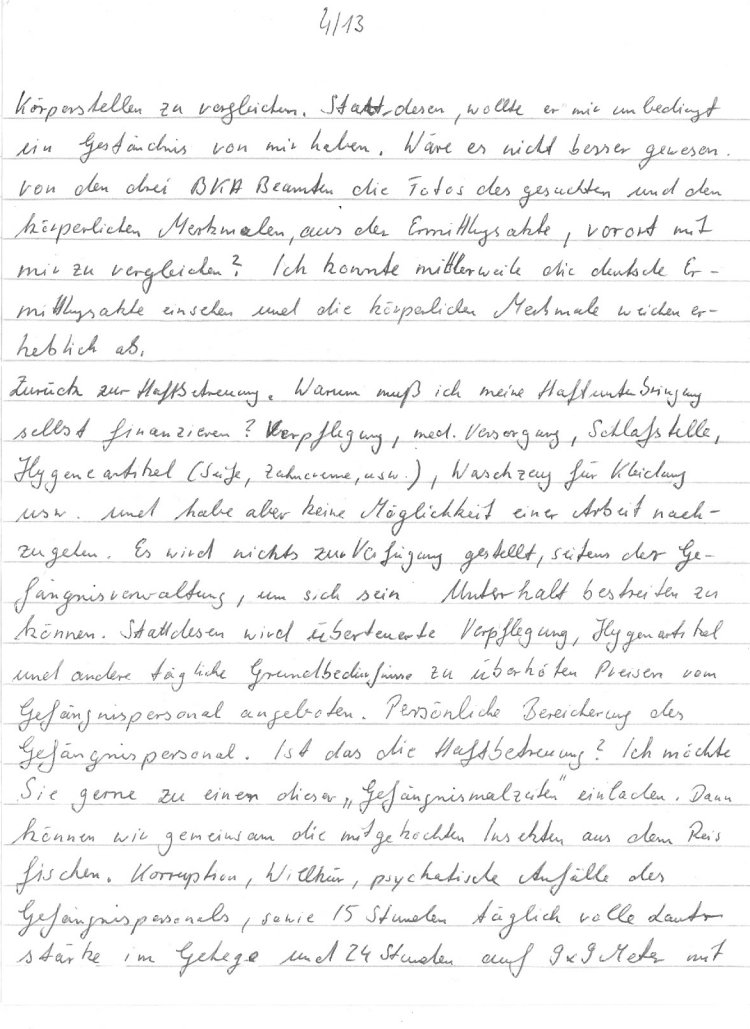 4/13
Körperstellen zu vergleichen. Statt desen, wollte er mir umbedingt
ein Geständnis von mir haben. Wäre es nicht besser gewesen.
von den drei BKA Beamten die Fotos des gesuchten und den
körperlichen Merkmalen, aus der Ermittlugsakte, vorort mit
mir zu vergleichen? Ich konnte mittlerweile die deutsche Er-
mittlugsakte einsehen und die körperlichen Merkmale weichen er-
heblich ab.
Zurück zur Haftbetreuung. Warum muß ich meine Haftunterbringung
selbst finanzieren? Verpflegung, med. Versorgung, Schlafstelle,
Hygeneartikel (Seife, Zahncreme, usw.), Waschzeug für Kleidung
usw. und habe aber keine Möglichkeit einer Arbeit nach-
zugehen. Es wird nichts zur Verfügung gestellt, seitens der Ge-
fängnisverwaltung, um sich sein Unterhalt bestreiten zu
können. Stattdesen wird überteuerte Verpflegung, Hygenartikel
und andere tägliche Grundbedürfnisse zu überhöten Preisen vom
Gefängnispersonal angeboten. Persönliche Bereicherung des
Gefängnispersonal. Ist das die Haftbetreuung? Ich möchte
Sie gerne zu einem dieser „Gefängnismalzeiten" einladen. Dann
können wir gemeinsam die mitgekochten Insekten aus dem Reis
fischen. Korruption, Willkür, psychatische Anfälle des
Gefängnispersonals, sowie 15 Stunden täglich volle Lautr
stärke im Gehege und 24 Stunden auf 9x9 Meter mit